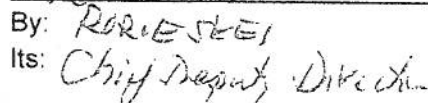 By: RORIE SKEI
Its: Chief Deputy Director